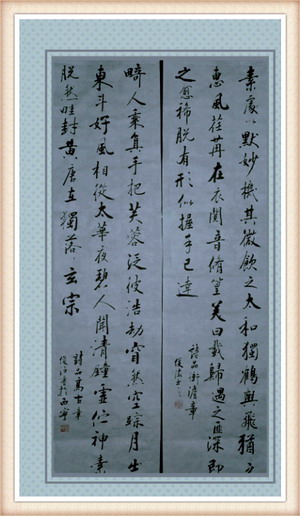 素處以默妙機其微飲之太和獨鶴與飛猶之
惠風荏苒在衣閱音脩篁美曰載歸遇之匪深即
之愈稀脫有形似握手已違
詩品衝澹章
畸人乘真手把芙蓉泛彼浩劫窅然空蹤月出
東斗好風相從太華夜碧人聞清鐘虛佇神素
脫然畦封黃唐在獨落玄宗
詩品高古章